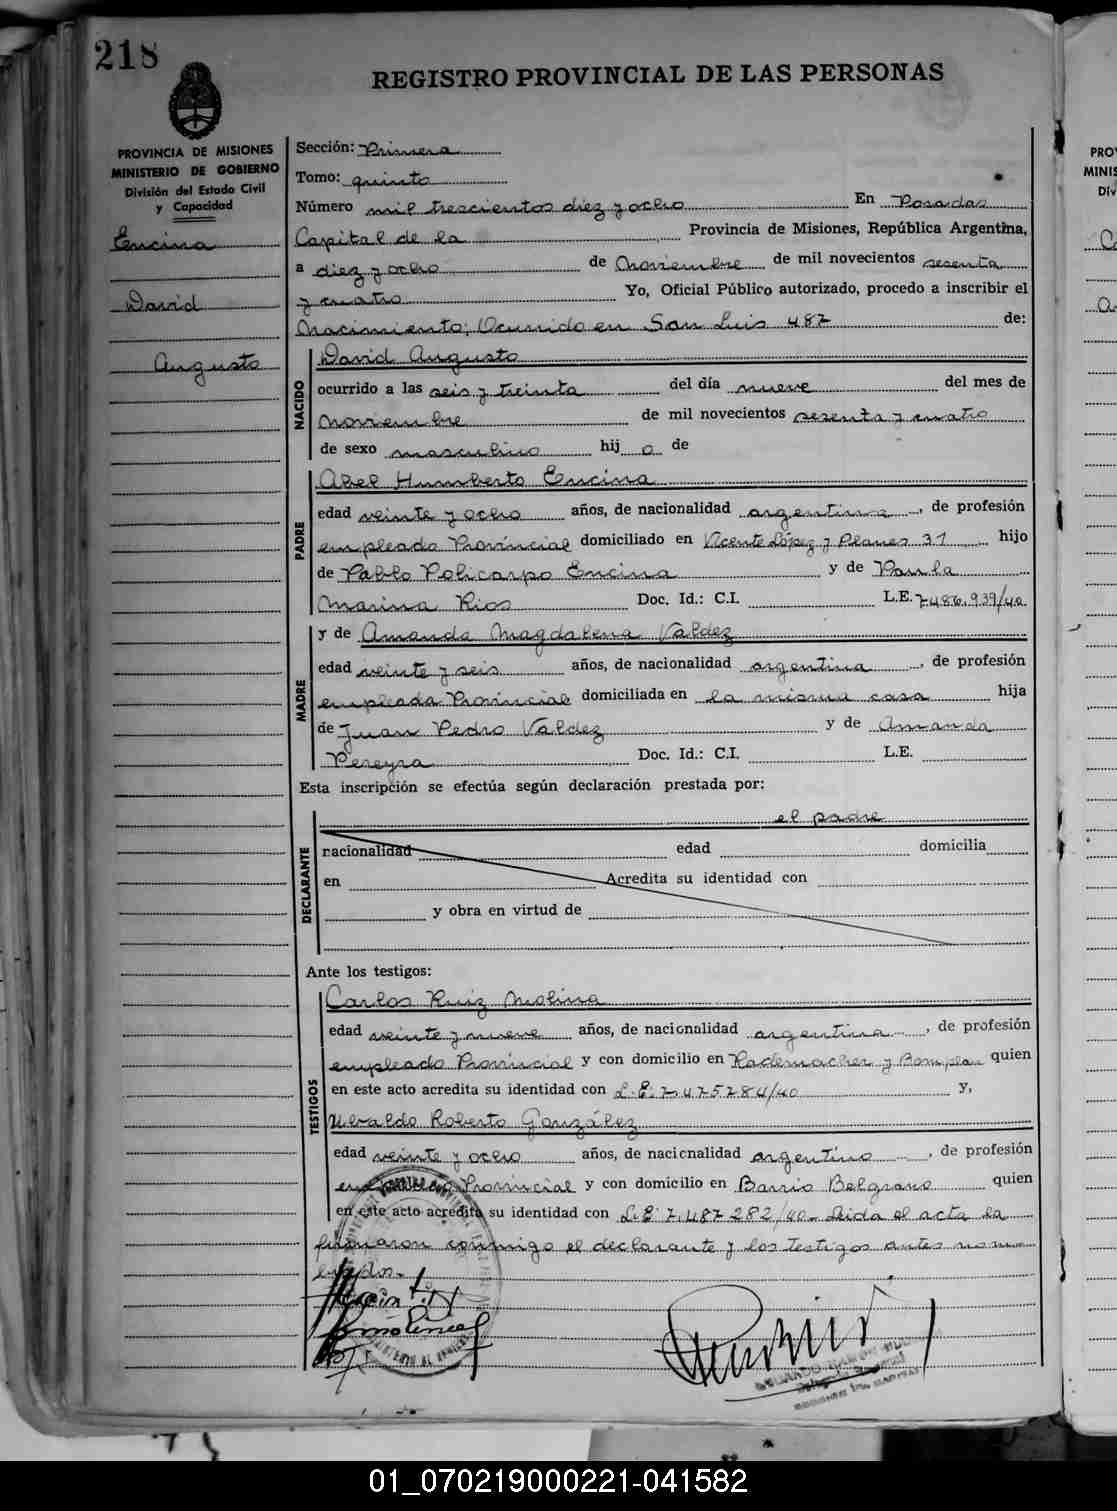 218
REGISTRO PROVINCIAL DE LAS PERSONAS
PROVINCIA DE MISIONES
MINISTERIO DE GOBIERNO
División del Estado Civil
y Capacidad
Encina
David
Augusto
Sección: Primera
Tomo: quinto
Número mil trescientos diez y ocho En Posadas
Capital de la Provincia de Misiones, República Argentina,
a diez y ocho de Noviembre de mil novecientos sesenta
y cuatro Yo, Oficial Público autorizado, procedo a inscribir el
Nacimiento; Ocurrido en San Luis 487 de:
NACIDO
David Augusto
ocurrido a las seis y treinta del día nueve del mes de
Noviembre de mil novecientos sesenta y cuatro
de sexo masculino hij o de
PADRE
Abel Humberto Encina
edad veinte y ocho años, de nacionalidad argentina, de profesión
empleado Provincial domiciliado en Vicente López y Planes 31 hijo
de Pablo Policarpo Encina y de Paula
Marina Rios Doc. Id.: C.I. L.E. 7486.939/40
MADRE
y de Amanda Magdalena Valdez
edad veinte y seis años, de nacionalidad argentina, de profesión
empleada Provincial domiciliada en la misma casa hija
de Juan Pedro Valdez y de Amanda
Pereyra Doc. Id.: C.I. L.E.
Esta inscripción se efectúa según declaración prestada por:
el padre
DECLARANTE
nacionalidad edad domicilia
en Acredita su identidad con
y obra en virtud de
Ante los testigos:
TESTIGOS
Carlos Ruiz Molina
edad veinte y nueve años, de nacionalidad argentina, de profesión
empleado Provincial y con domicilio en Rademacher y Bomplan quien
en este acto acredita su identidad con L.E. 7.475284/40 y,
Ubaldo Roberto González
edad veinte y ocho años, de nacionalidad argentino, de profesión
empleado Provincial y con domicilio en Barrio Belgrano quien
en este acto acredita su identidad con L.E. 7.487282/40- Leida el acta la
firmaron conmigo el declarante y los testigos antes nom-
brados.-
PRO
MINIS
Div
01_070219000221-041582